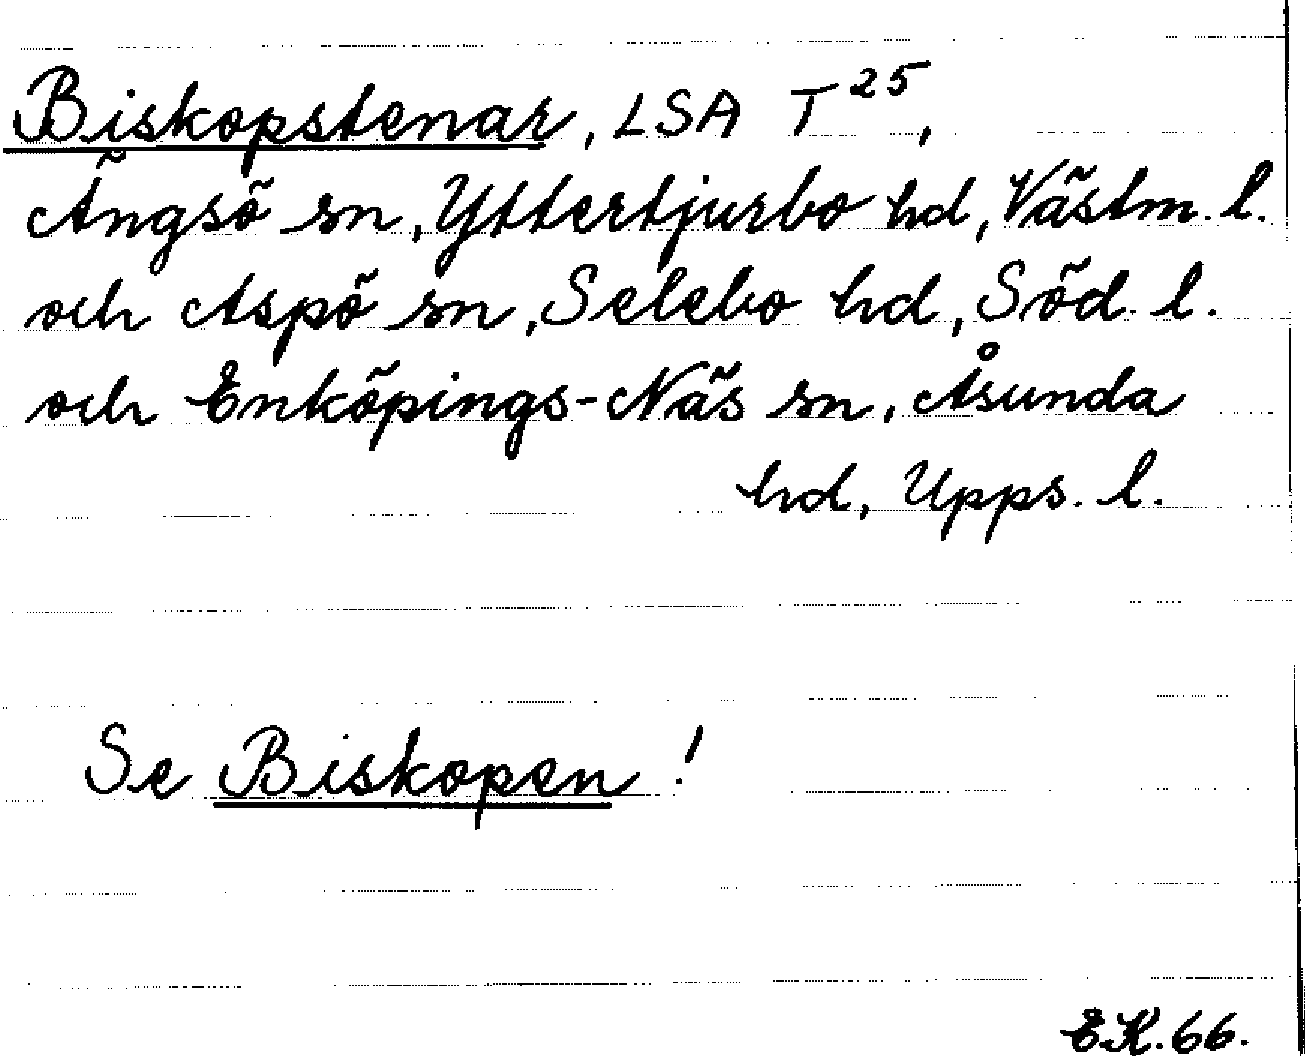 Biskopstenar, LSA T²⁵,
Ängsö sn, Yttertjurbo hd, Västm. l.
och Aspö sn, Selebo hd, Söd. l.
och Enköpings-Näs sn, Åsunda
hd, Upps. l.
Se Biskopen!
EK. 66.